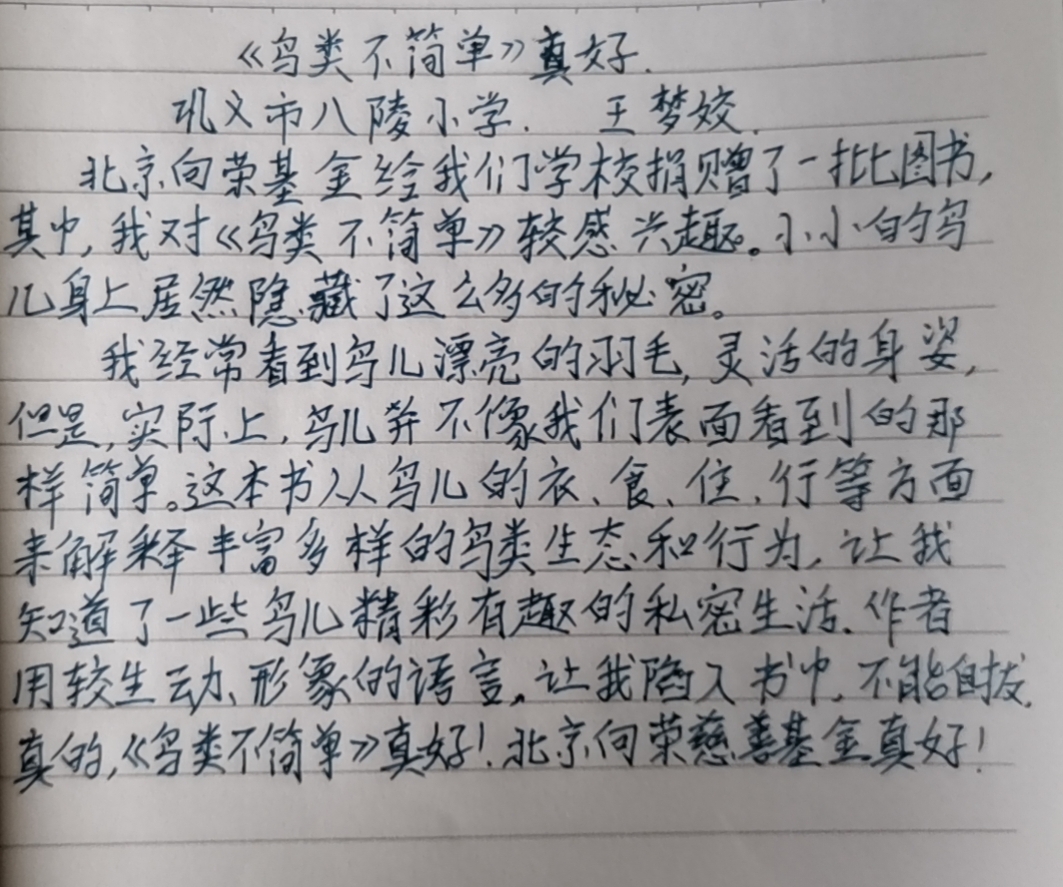 《鸟类不简单》真好.
巩义市八陵小学. 王梦姣.
北京向荣基金给我们学校捐赠了一批图书,
其中,我对《鸟类不简单》较感兴趣。小小的鸟
儿身上居然隐藏了这么多的秘密。
我经常看到鸟儿漂亮的羽毛,灵活的身姿,
但是,实际上,鸟儿并不像我们表面看到的那
样简单。这本书从鸟儿的衣、食、住、行等方面
来解释丰富多样的鸟类生态和行为,让我
知道了一些鸟儿精彩有趣的私密生活.作者
用较生动、形象的语言,让我陷入书中,不能自拔.
真的,《鸟类不简单》真好!北京向荣慈善基金真好!